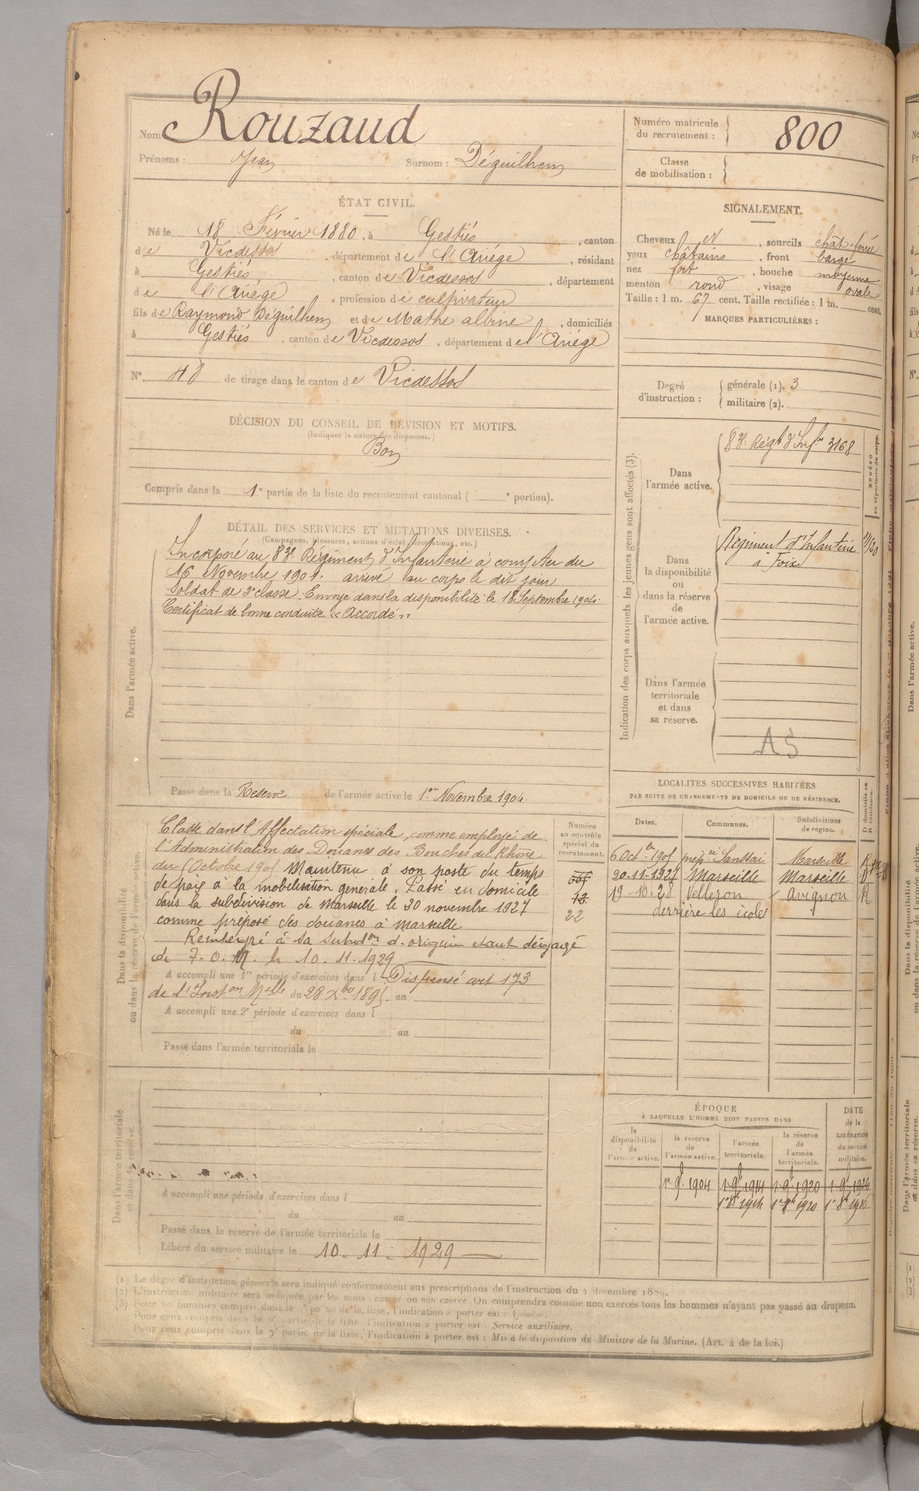 Nom Rouzaud
Prénoms : Jean Surnom : Déguilhem
Numéro matricule du recrutement : 800
Classe de mobilisation :
ÉTAT CIVIL.
Né le 18 Février 1880, à Gestiés, canton
de Vicdessos, département de l'Ariége, résidant
à Gestiés, canton de Vicdessos, département
de l'Ariége, profession de cultivateur
fils de Raymond Déguilhem et de Mathe albine, domiciliés
à Gestiés, canton de Vicdessos, département de l'Ariége
N° 48 de tirage dans le canton de Vicdessos
SIGNALEMENT.
Cheveux et, sourcils chât. foncé
yeux châtains, front large
nez fort, bouche moyenne
menton rond, visage ovale
Taille : 1 m. 67 cent. Taille rectifiée : 1 m. cent.
MARQUES PARTICULIÈRES :
Degré d'instruction : générale (1). 3
militaire (2).
DÉCISION DU CONSEIL DE RÉVISION ET MOTIFS.
(Indiquer la nature des dispenses.)
Bon
Compris dans la 1e partie de la liste du recrutement cantonal ( e portion).
DÉTAIL DES SERVICES ET MUTATIONS DIVERSES.
(Campagnes, blessures, actions d'éclat, décorations, etc.)
Dans l'armée active.
Incorporé au 83e Régiment d'Infanterie à compter du
16 Novembre 1901. arrivé au corps le dit jour
Soldat de 2e classe. Envoyé dans la disponibilité le 18 Septembre 1904.
Certificat de bonne conduite "Accordé"
Passé dans la Réserve de l'armée active le 1er Novembre 1904.
Indication des corps auxquels les jeunes gens sont affectés (3).
Dans l'armée active.
83e Régt d'Infie 3168
Dans la disponibilité ou dans la réserve de l'armée active.
Régiment d'Infanterie
à Foix
Dans l'armée territoriale et dans sa réserve.
AS
Dans la disponibilité ou dans la réserve de l'armée active.
Classé dans l'Affectation spéciale, comme employé de
l'Administration des Douanes des Bouches du Rhône
du 6 Octobre 1905 Maintenu à son poste du temps
de paix à la mobilisation générale. Passé en domicile
dans la subdivision de Marseille le 30 novembre 1927
comme préposé des douanes à Marseille
Remis à sa Subdon d'origine étant dégagé
de 7. O. M. le 10.11.1929
A accompli une 1re période d'exercices dans l Dispensé art 173
de l'Inston Melle du 28 Xbre 1895 au
A accompli une 2e période d'exercices dans l
du au
Passé dans l'armée territoriale le
Numéro au contrôle spécial du recrutement.
12
22
LOCALITÉS SUCCESSIVES HABITÉES
PAR SUITE DE CHANGEMENTS DE DOMICILE OU DE RÉSIDENCE.
Dates. Communes. Subdivisions de région. D domicile ou R résidence.
6 Octbre 1905 Marseille R
30-11-1927 Marseille Marseille D
19-10-28 Velleron Avignon R
derrière les écoles
Dans l'armée territoriale et dans sa réserve.
A accompli une période d'exercices dans l
du au
Passé dans la réserve de l'armée territoriale le
Libéré du service militaire le 10-11-1929
ÉPOQUE
À LAQUELLE L'HOMME DOIT PASSER DANS
la disponibilité de l'armée active. la réserve de l'armée active. l'armée territoriale. la réserve de l'armée territoriale. DATE de la LIBÉRATION du service militaire.
1er 9bre 1904 1er 9bre 1914 1er 9bre 1920 1er 9bre 1926
(1) Le degré d'instruction générale sera indiqué conformément aux prescriptions de l'instruction du 4 décembre 1889.
(2) L'instruction militaire sera indiquée par les mots : exercé ou non exercé. On comprendra comme non exercés tous les hommes n'ayant pas passé au drapeau.
Pour ceux compris dans la partie de la liste, l'indication à porter est : Service auxiliaire.
Pour ceux compris dans la partie de la liste, l'indication à porter est : Mis à la disposition du Ministre de la Marine. (Art. 4 de la loi.)